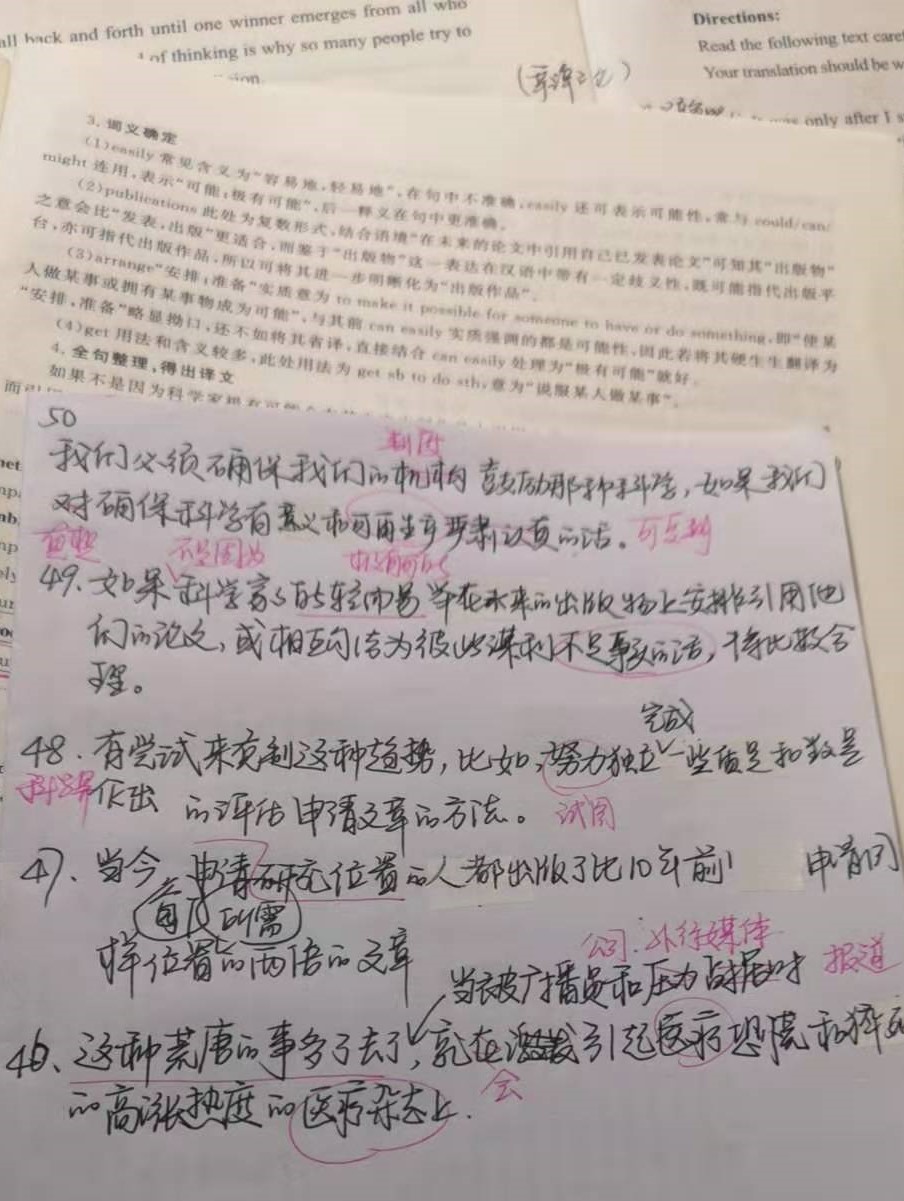 all back and forth until one winner emerges from all who
of thinking is why so many people try to
Directions:
Read the following text care
Your translation should be w
only after I s
3. 词义确定
(1)easily 常见含义为“容易地,轻易地”,在句中不准确,easily 还可表示可能性,常与 could/can/
might 连用,表示“可能;极有可能”,后一释义在句中更准确。
(2)publications 此处为复数形式,结合语境“在未来的论文中引用自己已发表论文”可知其“出版物”
之意会比“发表,出版”更适合,而鉴于“出版物”这一表达在汉语中带有一定歧义性,既可能指代出版平
台,亦可指代出版作品,所以可将其进一步明晰化为“出版作品”。
(3)arrange“安排;准备”实质意为 to make it possible for someone to have or do something,即“使某
人做某事或拥有某事物成为可能”,与其前 can easily 实质强调的都是可能性,因此若将其硬生生翻译为
“安排,准备”略显拗口,还不如将其省译,直接结合 can easily 处理为“极有可能”就好。
(4)get 用法和含义较多,此处用法为 get sb to do sth,意为“说服某人做某事”。
4. 全句整理,得出译文
如果不是因为科学家极有可能
50
制度
我们必须确保我们的机构鼓励那种科学,如果我们
对确保科学有意义和可再生产严肃认真的话。
不是因为
49. 如果科学家们能轻而易举在未来的出版物上安排引用他
们的论文,或相互勾结为彼此谋利不是事实的话,将比较合
理。
完成
48. 有尝试来克制这种趋势,比如,努力独立一些质量和数量
科学界 作出 的评估申请文章的方法。 试图
47. 当今申请研究位置的人都出版了比10年前 申请同
每 所需
样位置的两倍的文章
公司 外行媒体
当被广播员和压力占据时 报道
46、这种荒唐的事多了去了,就在激发引起医疗恐慌和猝死
会
的高涨热度的医疗杂志上.